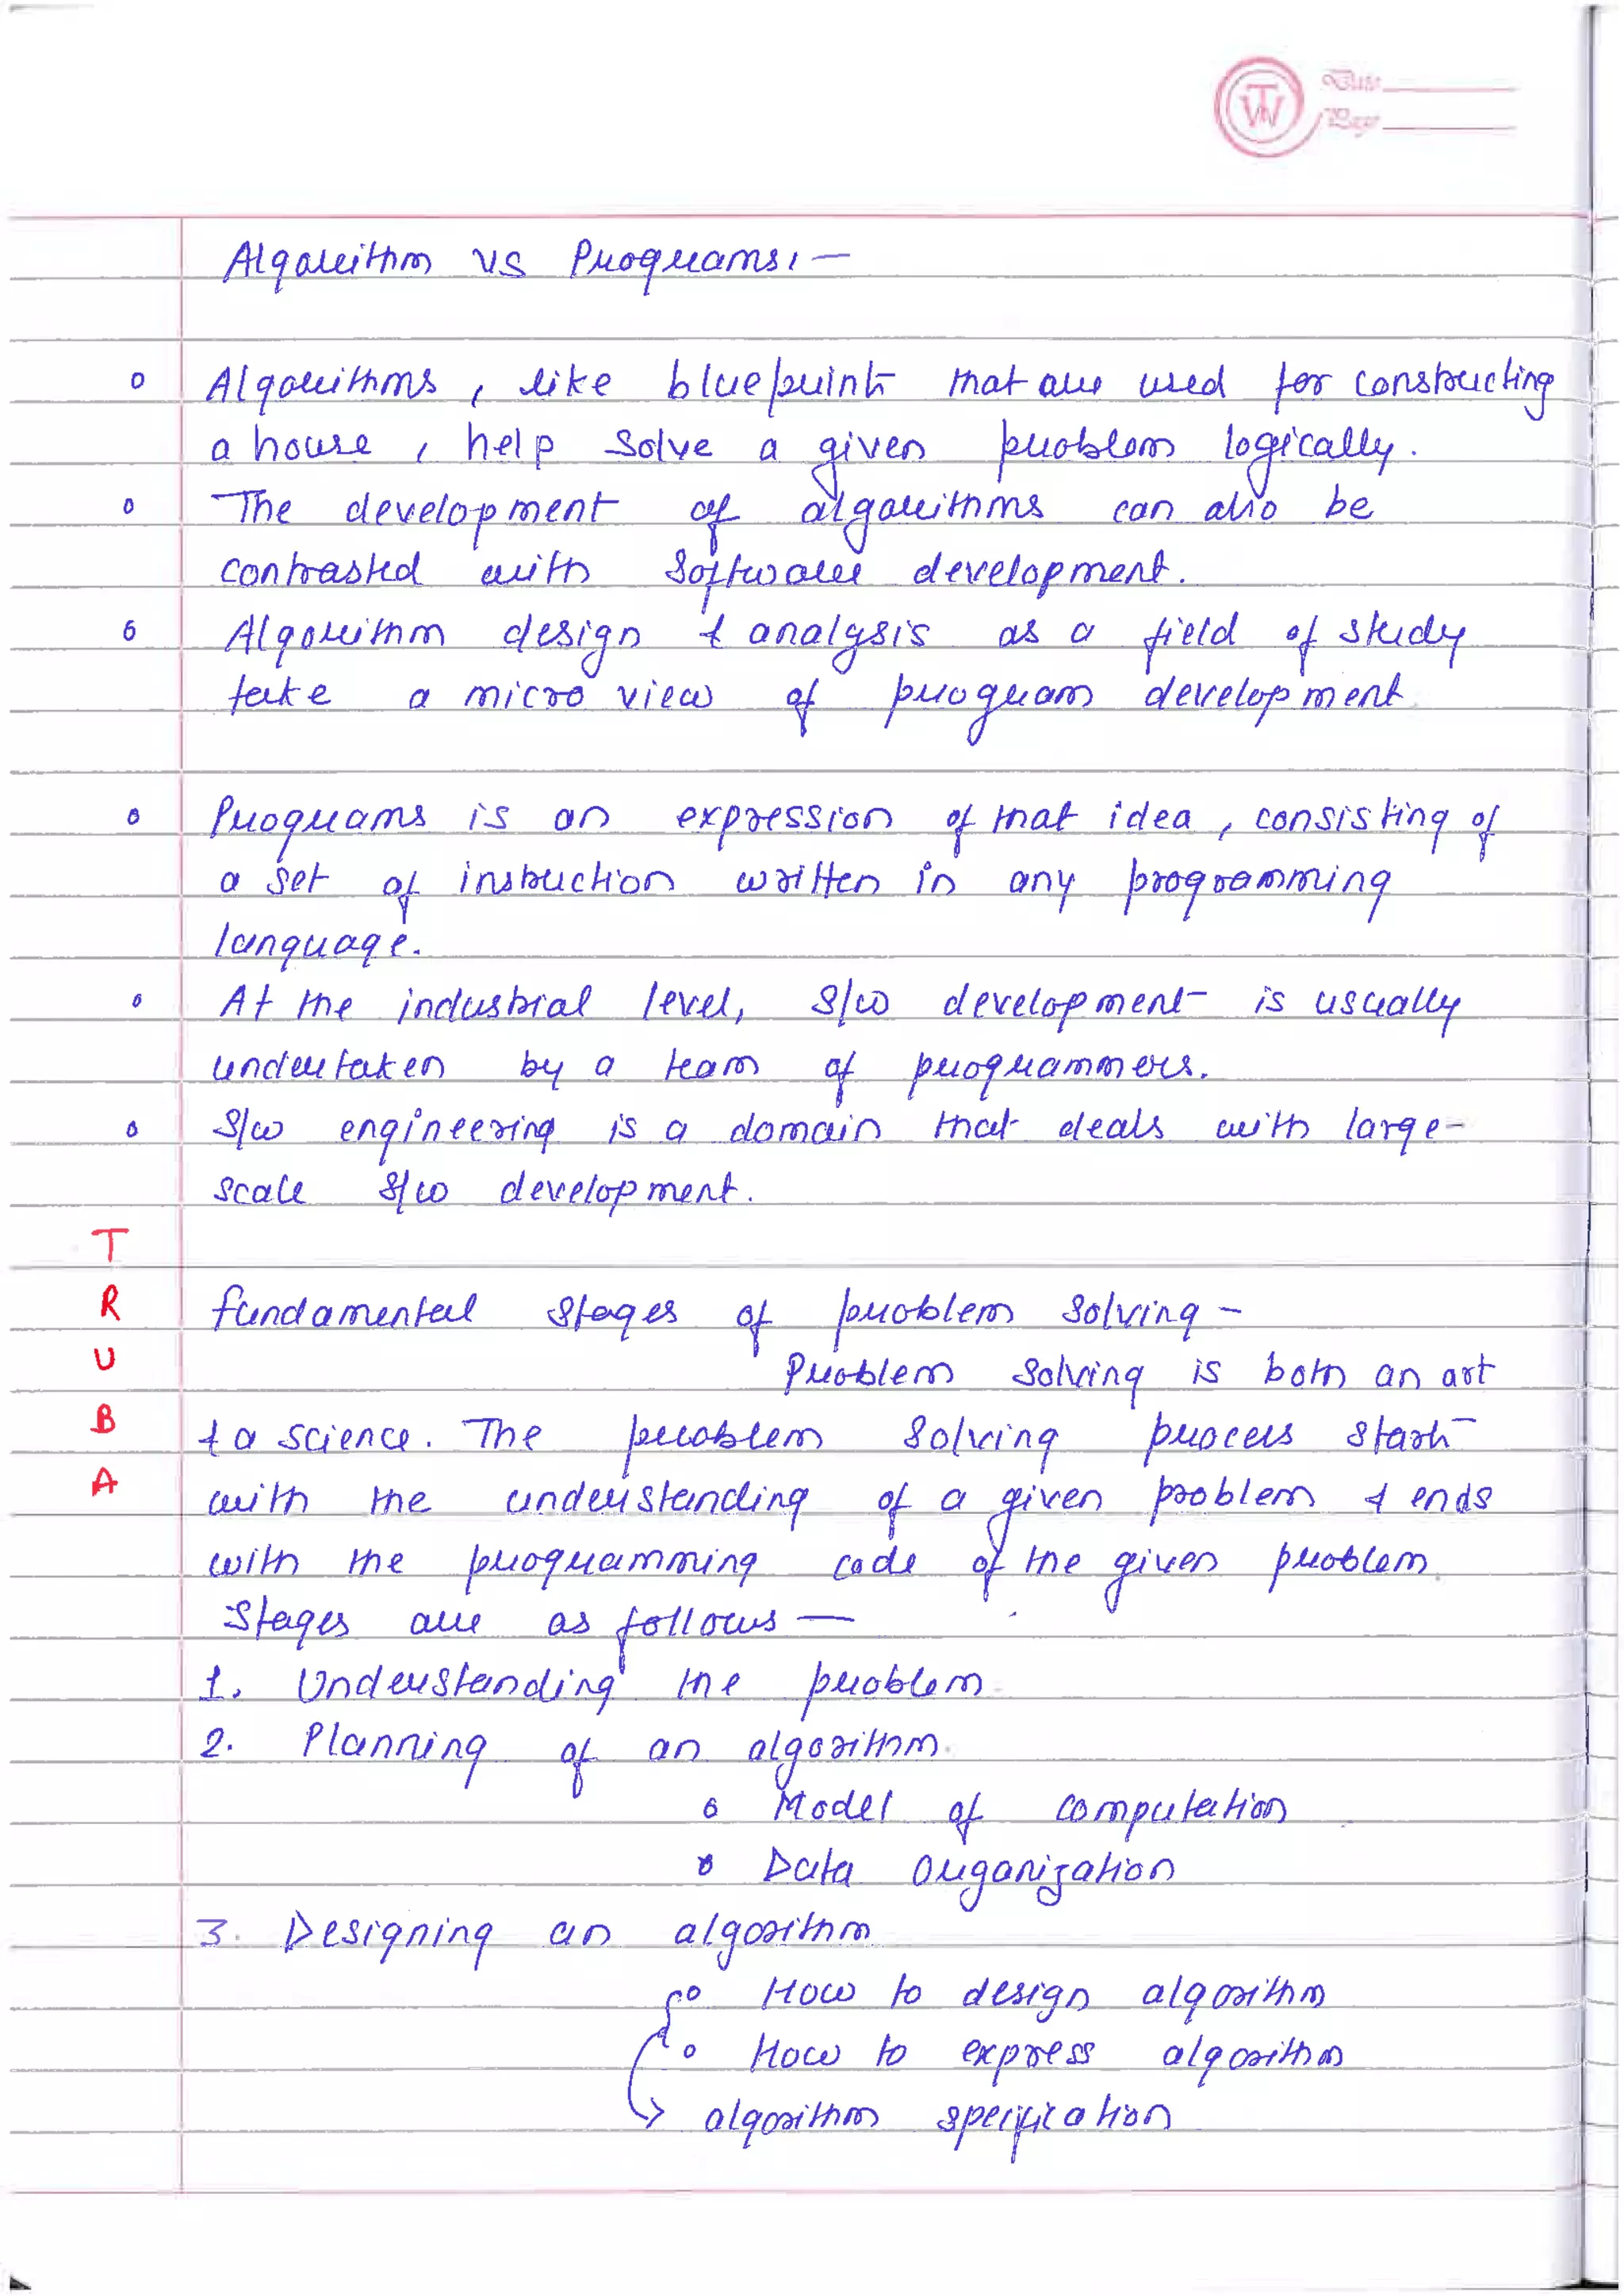 Date
Page
Algorithm vs Programs :-
Algorithms, like blueprints that are used for constructing
a house, help solve a given problem logically.
The development of algorithms can also be
contrasted with software development.
Algorithm design & analysis as a field of study
take a micro view of program development
Programs is an expression of that idea, consisting of
a set of instruction written in any programming
language.
At the industrial level, S/w development is usually
undertaken by a team of programmers.
S/w engineering is a domain that deals with large-
scale S/w development.
T
R
U
B
A
fundamental stages of problem solving -
Problem solving is both an art
& a science. The problem solving process starts
with the understanding of a given problem & ends
with the programming code of the given problem.
Stages are as follows —
1. Understanding the problem
2. Planning of an algorithm
Model of computation
Data Organization
3. Designing an algorithm
How to design algorithm
How to express algorithm
algorithm specification